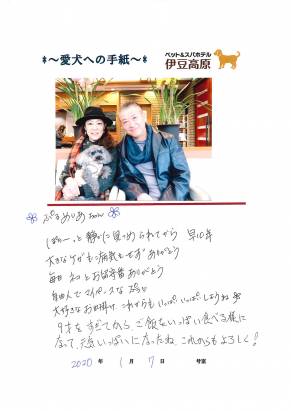 *～愛犬への手紙～*
ペット&スパホテル
伊豆高原
ぷりめしあちゃん
ぼーっと静かに見つめられてから 早10年
大きなケガもご病気もせず ありがとう
毎日 ネコとお留守番ありがとう
自由人でマイペースな
大好きなお出掛け これからもいっぱい、いっぱい、しようね
9才をすぎてから、ご飯をいっぱい食べる様に
なって、元気いっぱいになったね、これからもよろしく!
2020 年 1 月 7 日 号室